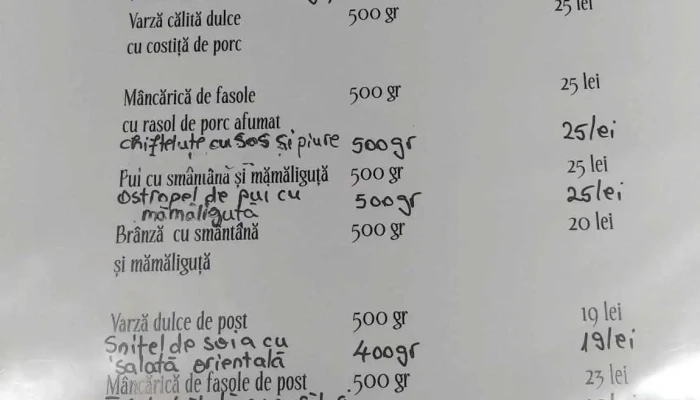 Varză călită dulce 500 gr 25 lei
cu costiță de porc
Mâncărică de fasole 500 gr 25 lei
cu rasol de porc afumat
chifteluțe cu sos și piure 500gr 25lei
Pui cu smântână și mămăliguță 500 gr 25 lei
Ostropel de pui cu 500gr 25lei
mămăliguță
Brânză cu smântână 500 gr 20 lei
și mămăliguță
Varză dulce de post 500 gr 19 lei
Șnițel de soia cu 400gr 19lei
salată orientală
Mâncărică de fasole de post 500 gr 23 lei